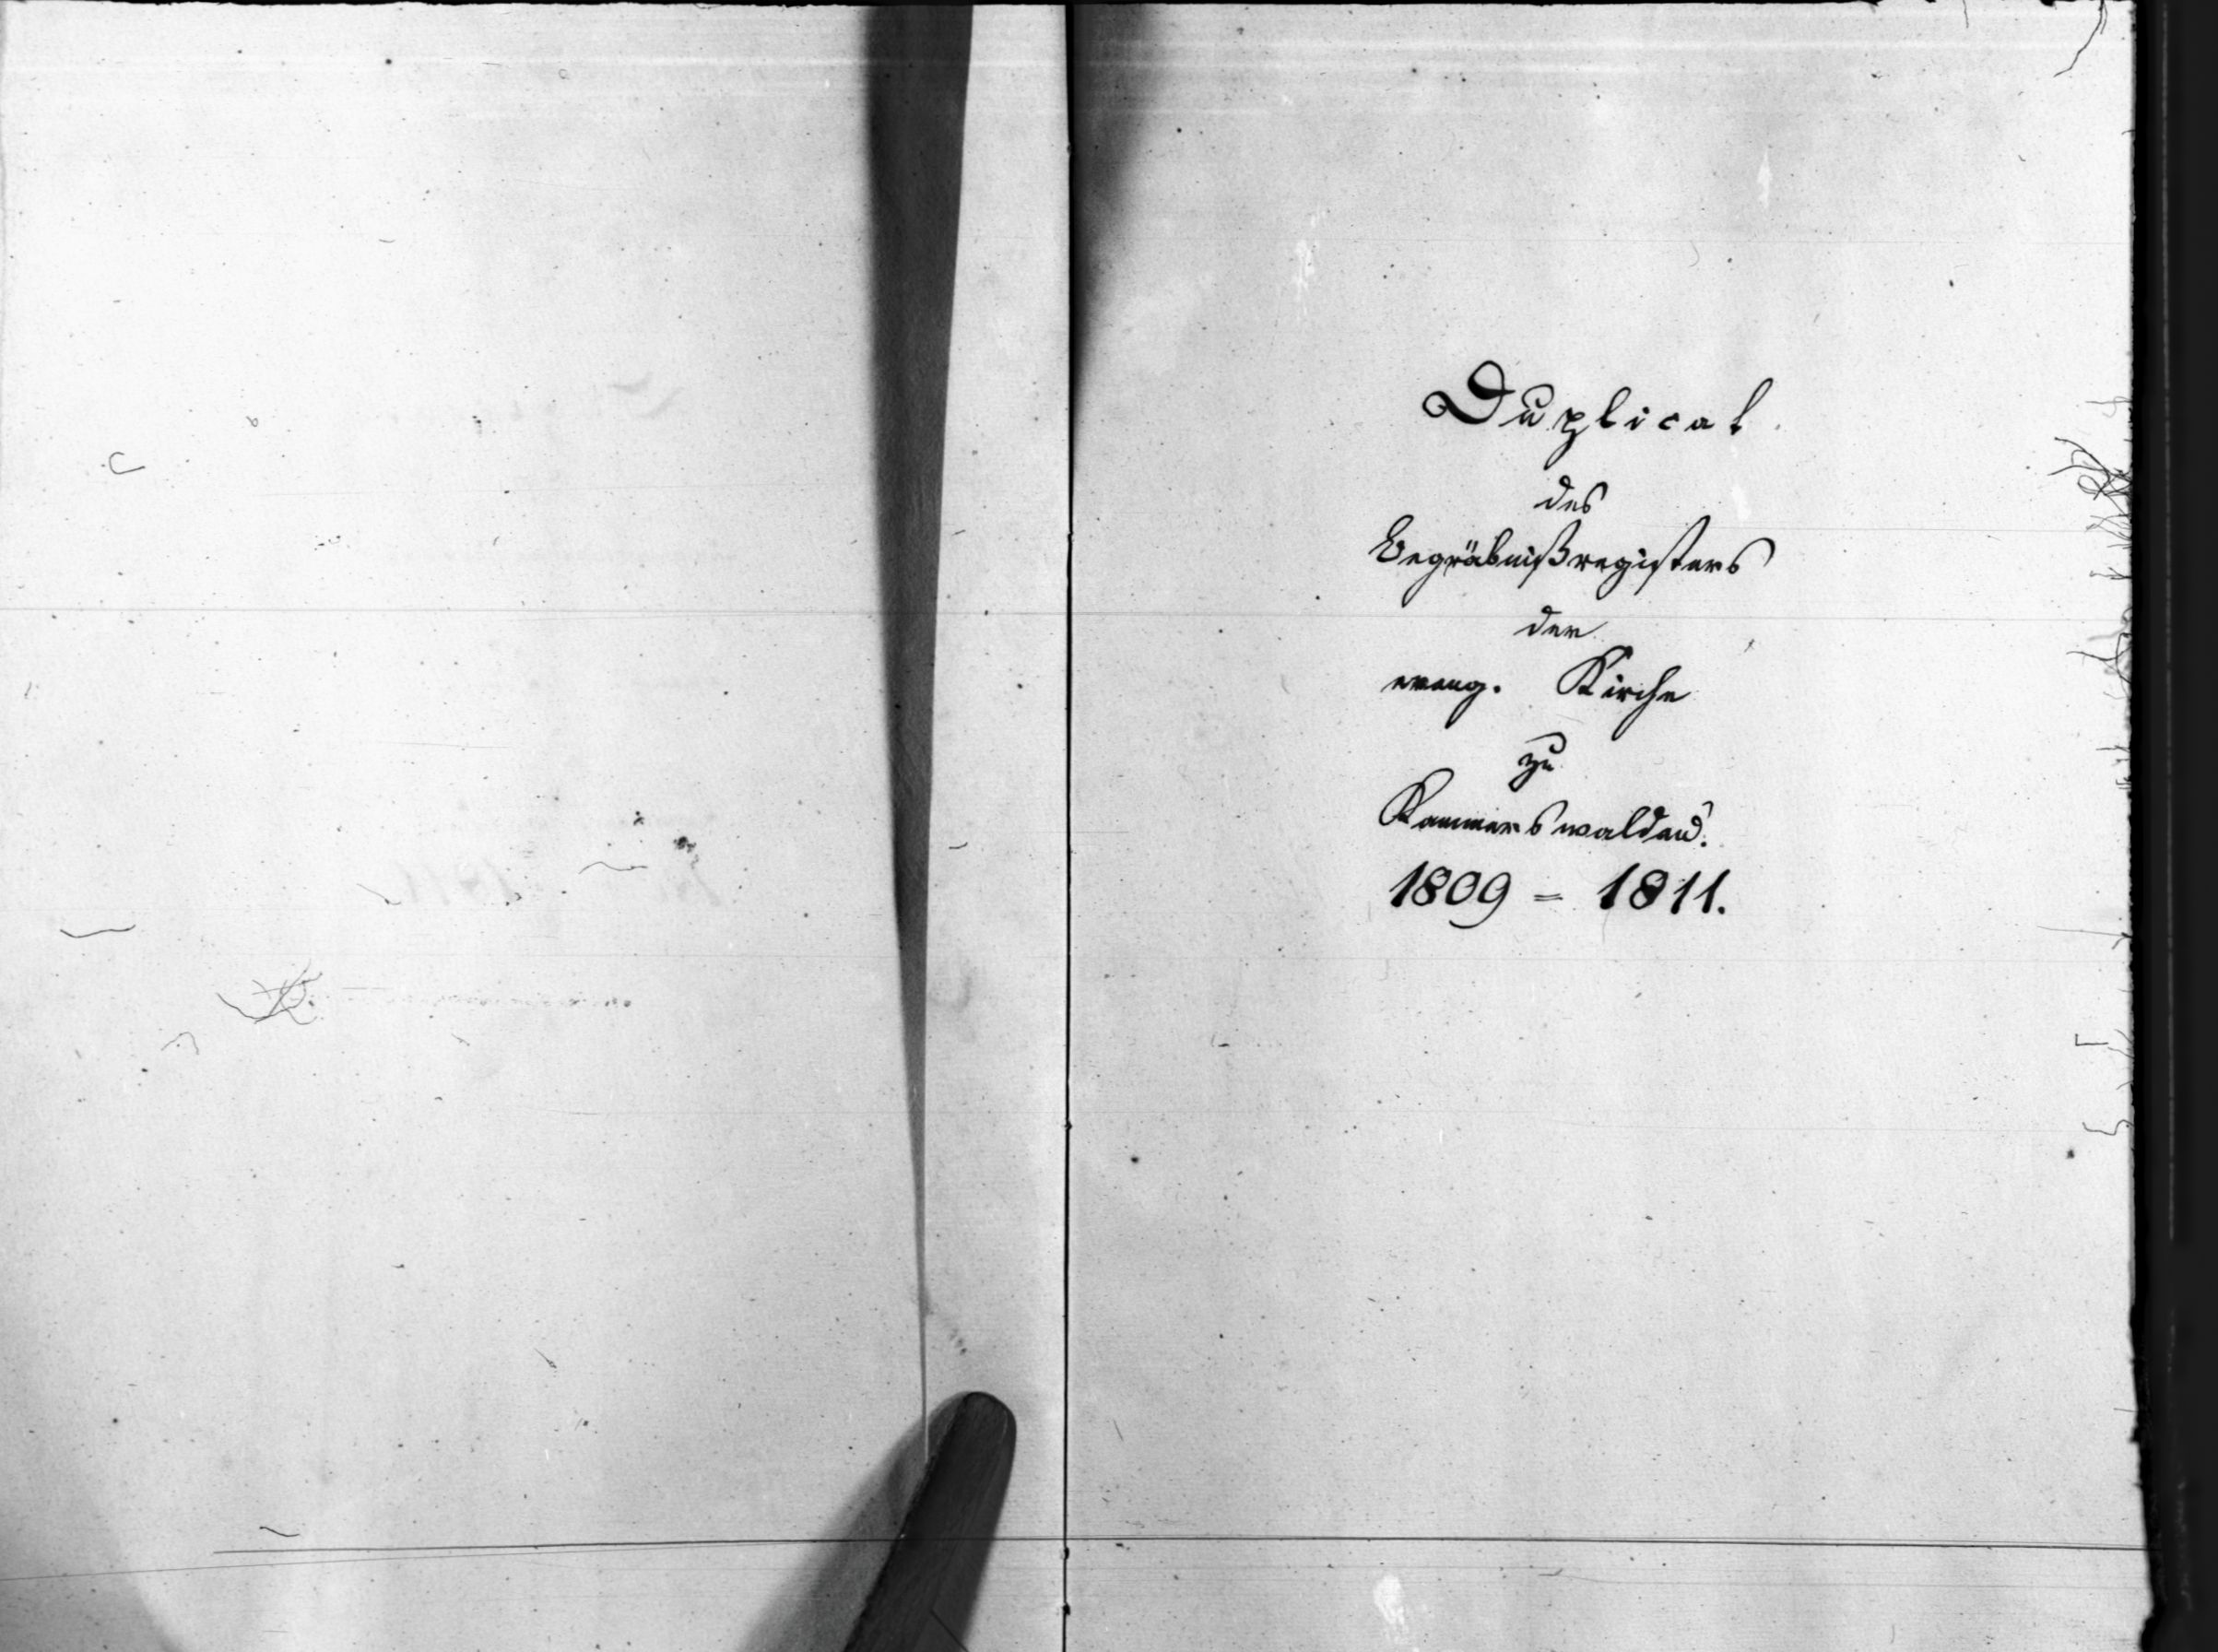 Duplicat
des
Begräbnißregisters
der
evang. Kirche
zu
Kammerswaldau.
1809 = 1811.